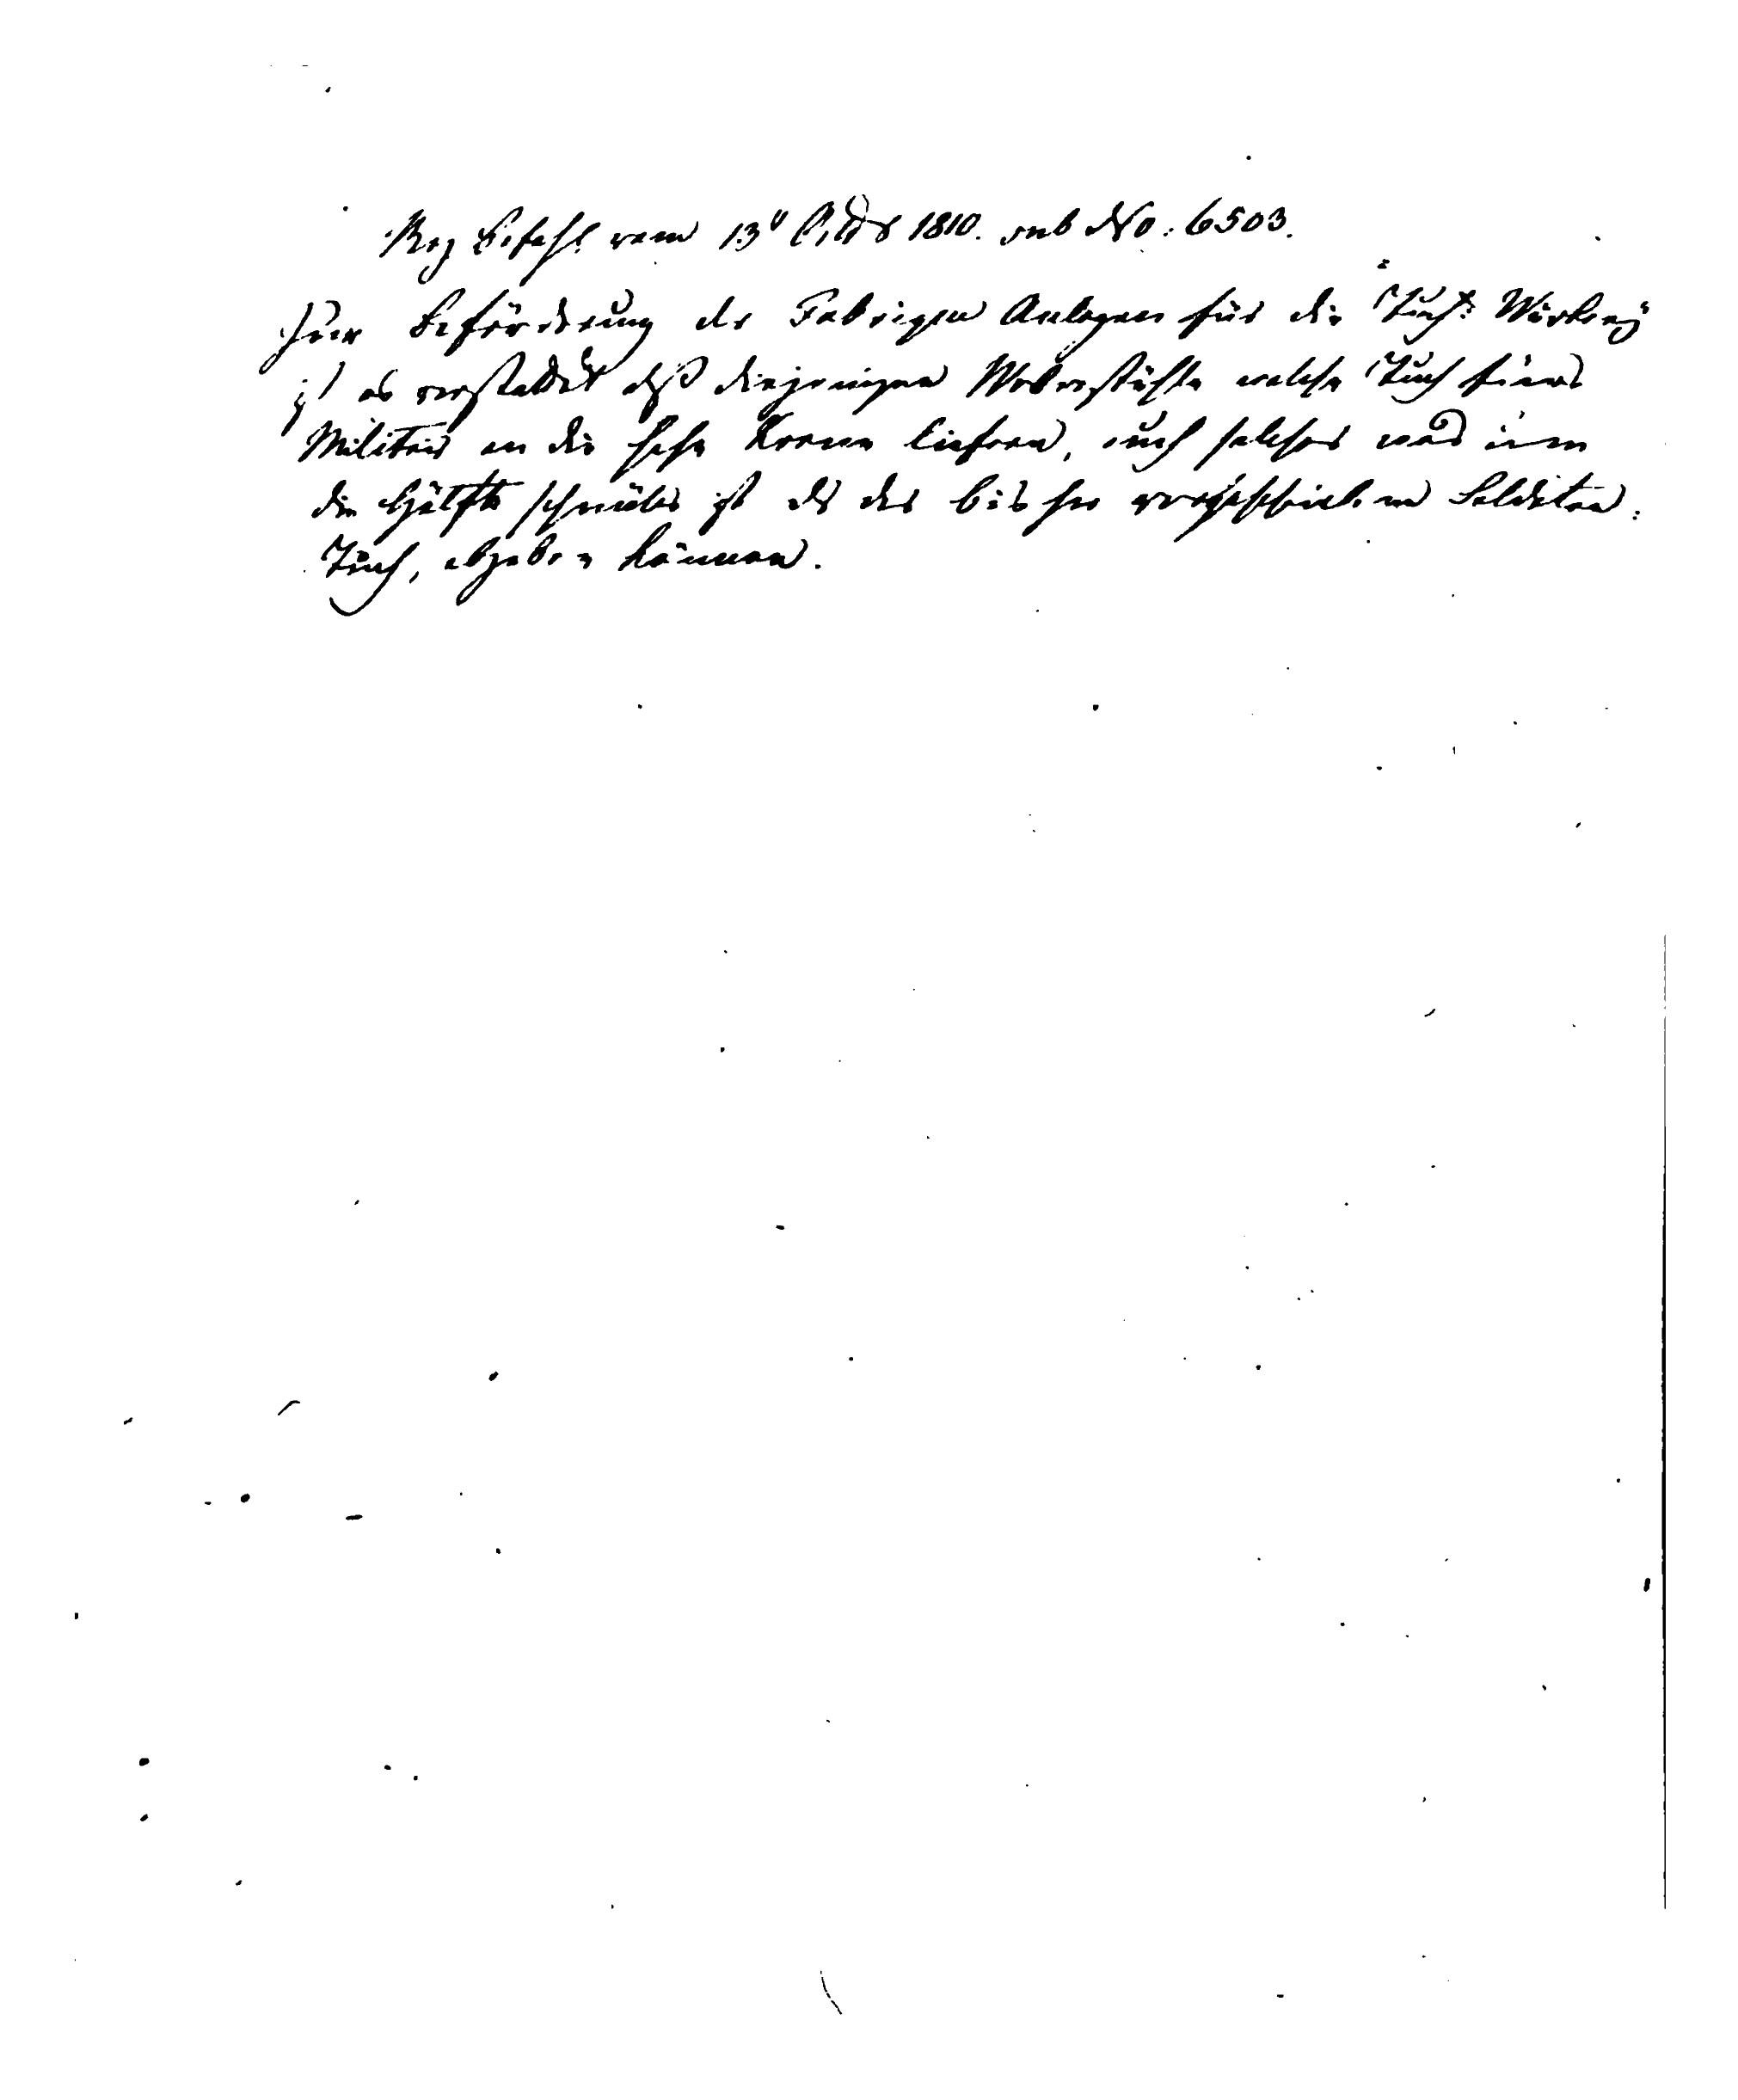 Reg Befehl vom 13n Octbr 1810. sub No: 6503.
Zur Beförderung der Fabriquen Anlagen für die Tuch: Würkerey
ist es verstattet daß diejenigen Weberstühle welche Tuch fürs
Militair an die hohe Krone liefern, auch solches was um
die Hälfte schmäler ist als das bisher vorgeschriebene Soldaten:
Tuch, abgeben können.